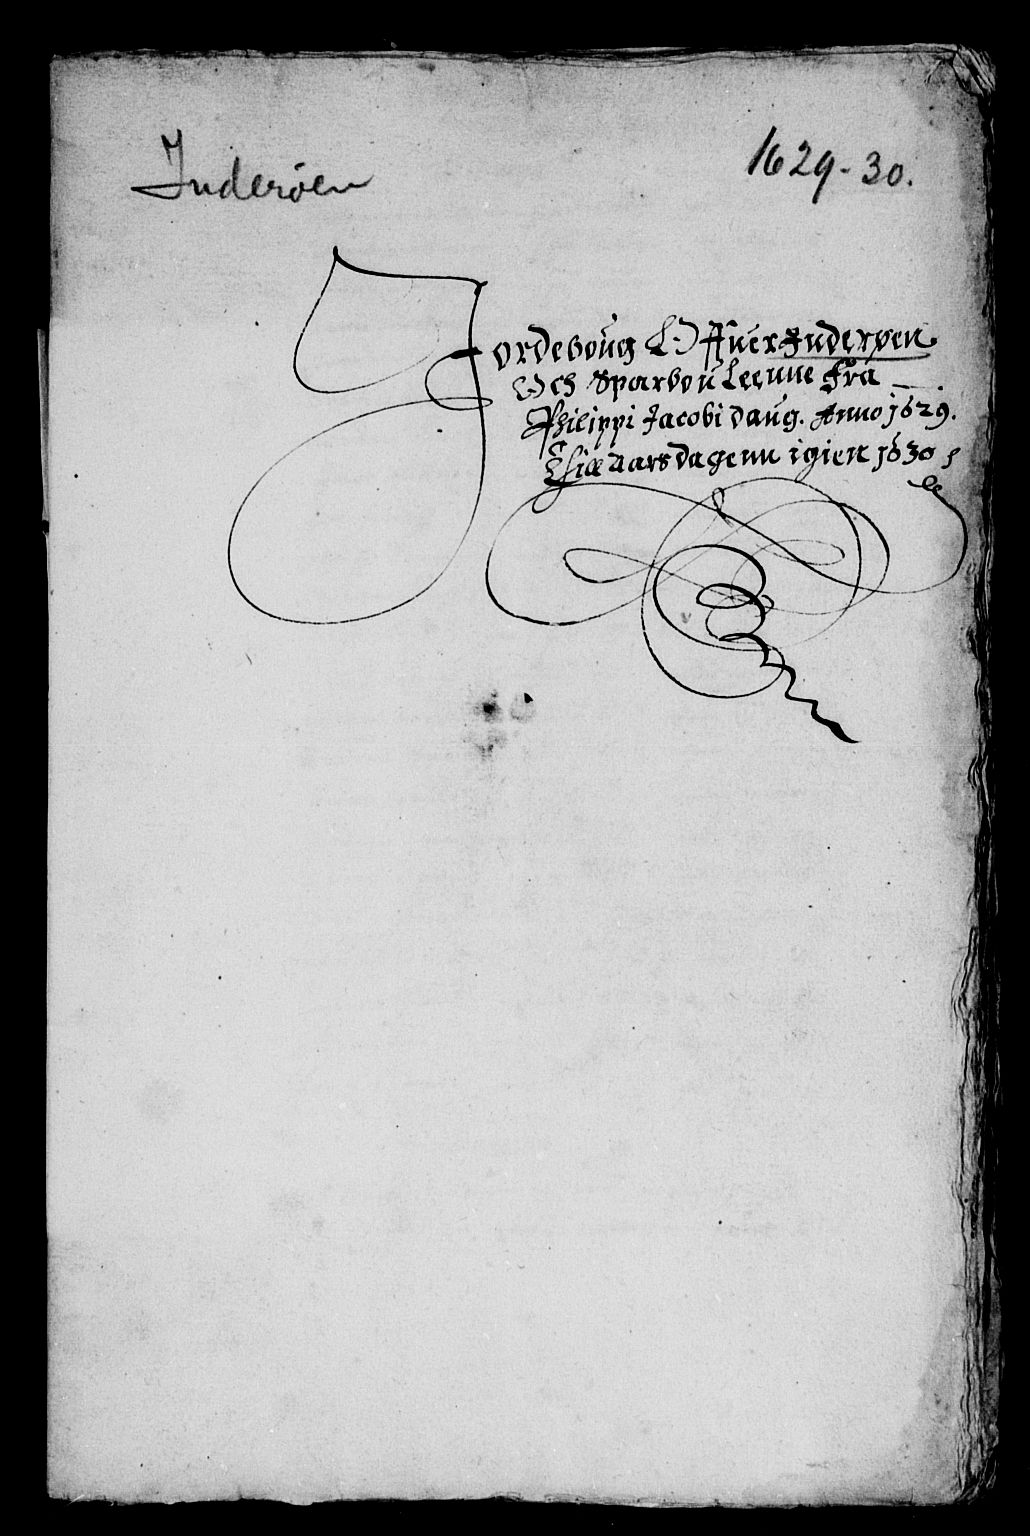 Inderøen
1629-30.
Jordeboug Offuer Inderøen
Och Sparbou Leenne Fra
Philippi Jacobi daug. Anno 1629.
Thill Aarsdagenn igien 1630